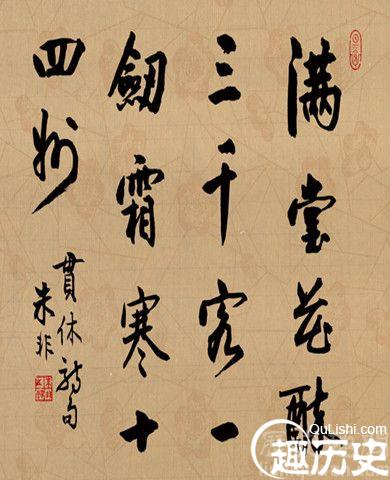 满堂花醉
三千客一
劍霜寒十
四州
貫休诗句
朱非
QuLishi.com
趣历史